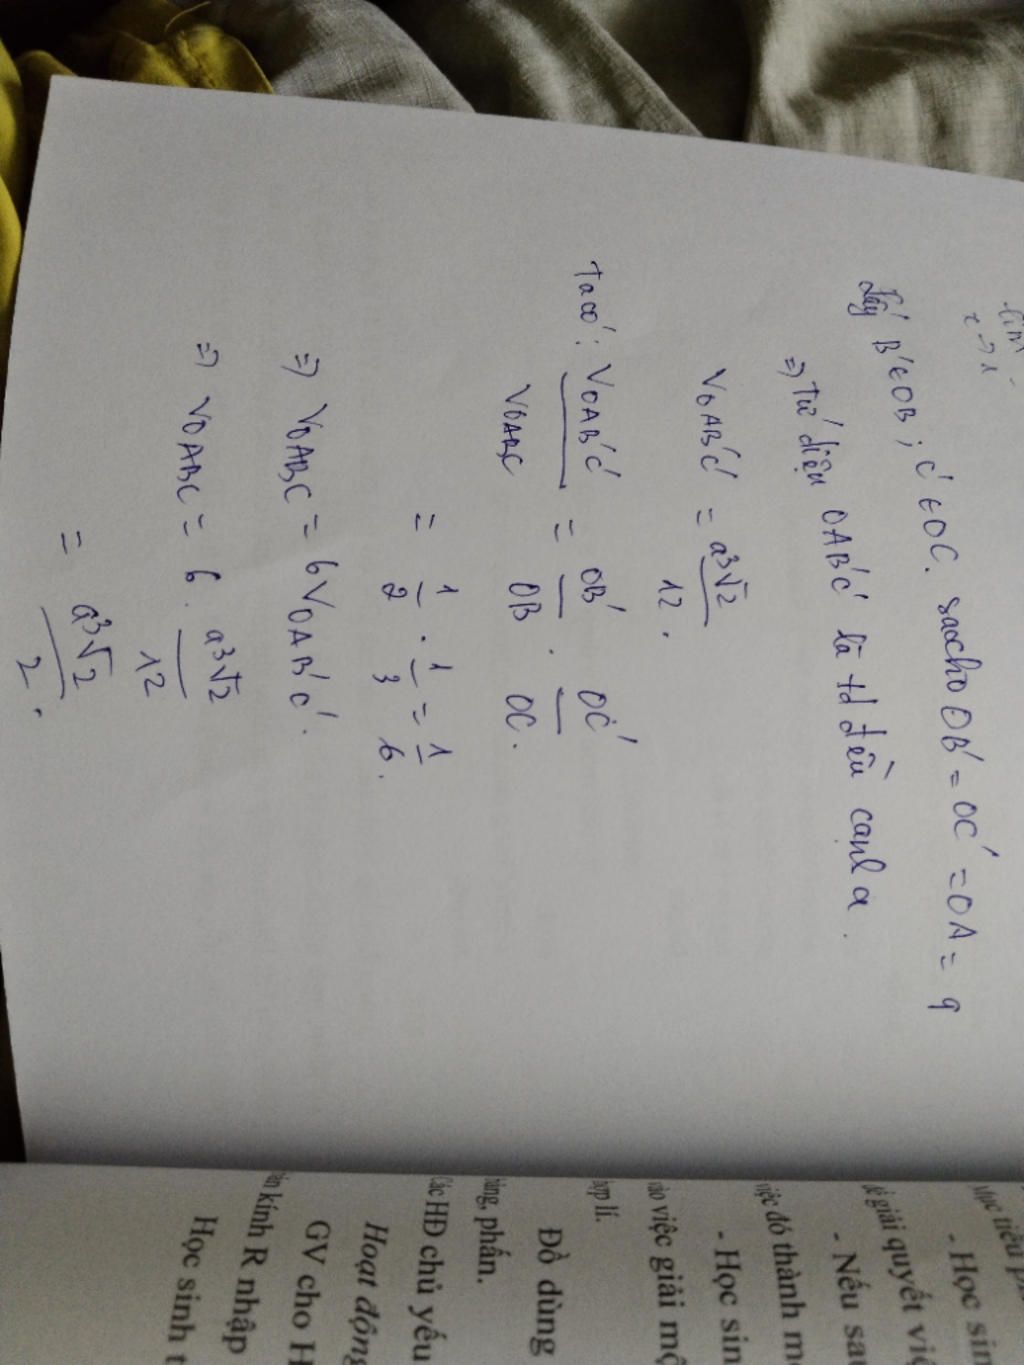 lim
x→1
Lấy B'∈OB; C'∈OC. saocho OB' = OC' = OA = a
=> Tứ diện OAB'C' là td đều cạnh a.
VOAB'C' = a³√2 / 12.
Ta có: VOAB'C' / VOABC = OB' / OB . OC' / OC.
= 1/2 . 1/3 = 1/6.
=> VOABC = 6VOAB'C'.
=> VOABC = 6. a³√2 / 12
= a³√2 / 2.
- Học sin
giải quyết vi
- Nếu sa
việc đó thành m
- Học sin
vào việc giải mộ
hợp lí.
Đồ dùng
phấn.
Các HĐ chủ yếu
Hoạt động
GV cho H
kính R nhập
Học sinh t